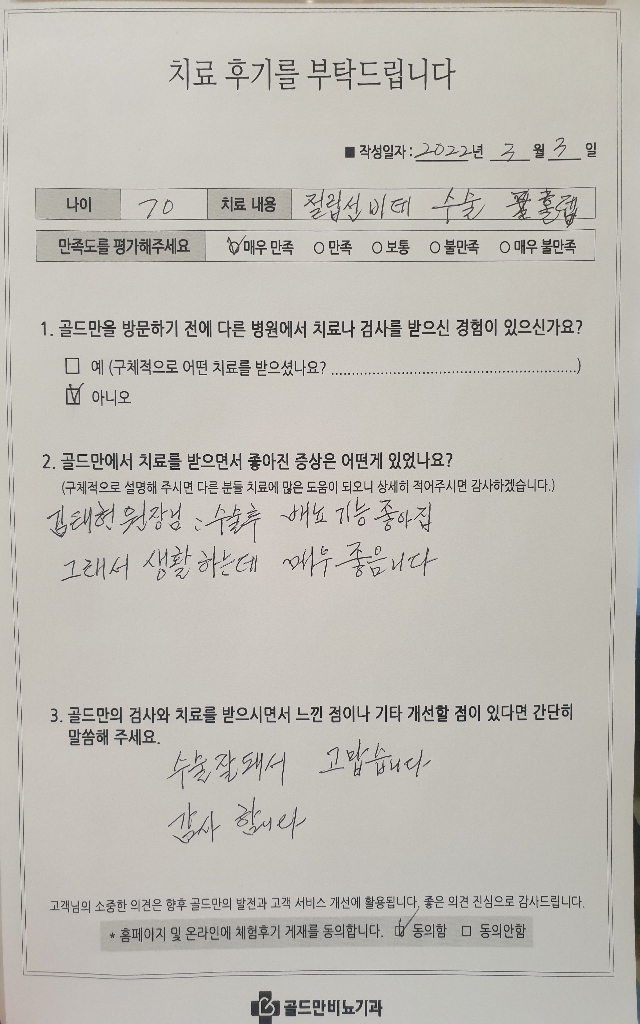 치료 후기를 부탁드립니다
■ 작성일자 : 2022년 3월 3일
나이 70 치료 내용 전립선 비데 수술 홀렙
만족도를 평가해주세요 ○매우 만족 ○만족 ○보통 ○불만족 ○매우 불만족
1. 골드만을 방문하기 전에 다른 병원에서 치료나 검사를 받으신 경험이 있으신가요?
□ 예 (구체적으로 어떤 치료를 받으셨나요? ........................................................)
☑ 아니오
2. 골드만에서 치료를 받으면서 좋아진 증상은 어떤게 있었나요?
(구체적으로 설명해 주시면 다른 분들 치료에 많은 도움이 되오니 상세히 적어주시면 감사하겠습니다.)
김태헌 원장님 : 수술후 배뇨 기능 좋아집
그래서 생활 하는데 매우 좋음니다
3. 골드만의 검사와 치료를 받으시면서 느낀 점이나 기타 개선할 점이 있다면 간단히
말씀해 주세요.
수술 잘돼서 고맙습니다
감사 합니다
고객님의 소중한 의견은 향후 골드만의 발전과 고객 서비스 개선에 활용됩니다. 좋은 의견 진심으로 감사드립니다.
* 홈페이지 및 온라인에 체험후기 게재를 동의합니다. ☑ 동의함 □ 동의안함
골드만비뇨기과